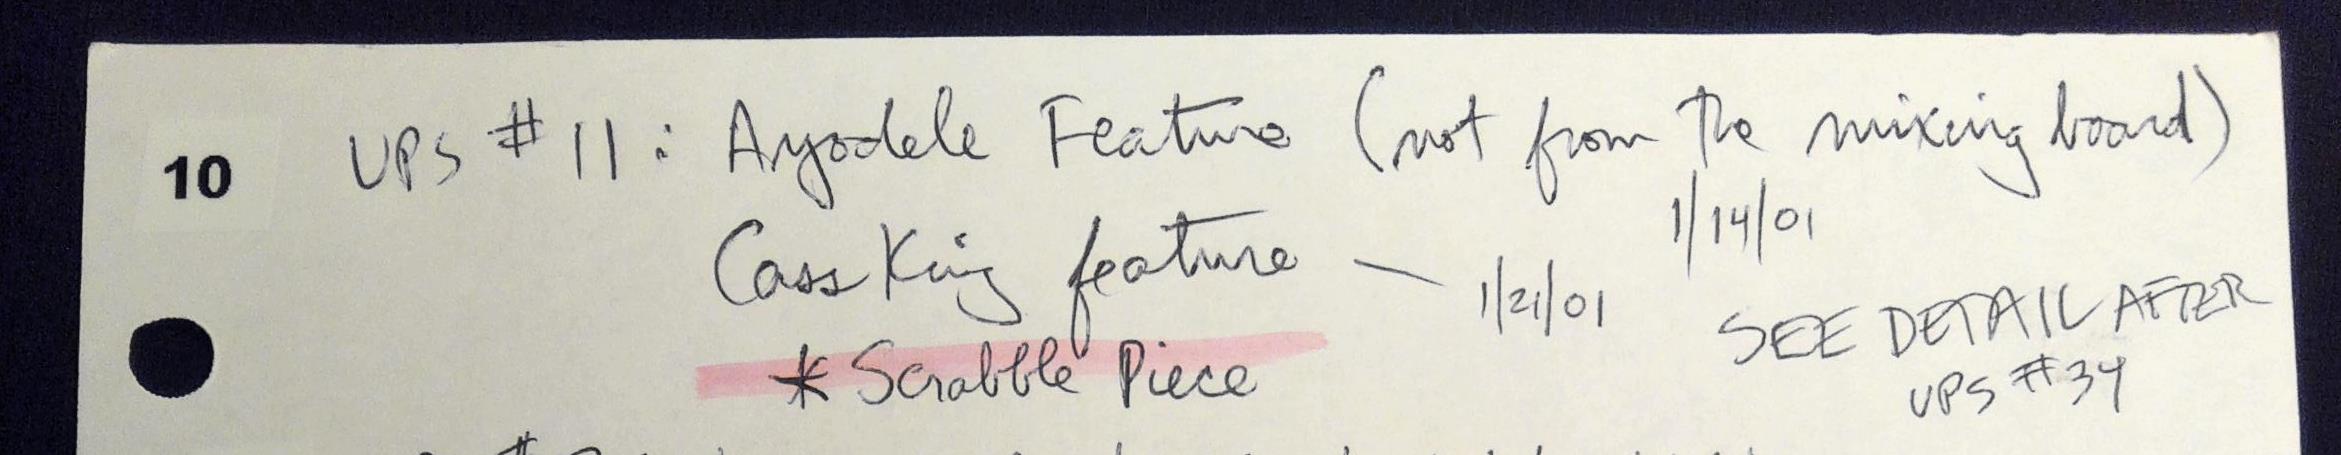 10 UPS #11: Ayodele Feature (not from the mixing board)
1/14/01
Cass King feature — 1/21/01
SEE DETAIL AFTER
* Scrabble Piece
UPS #34